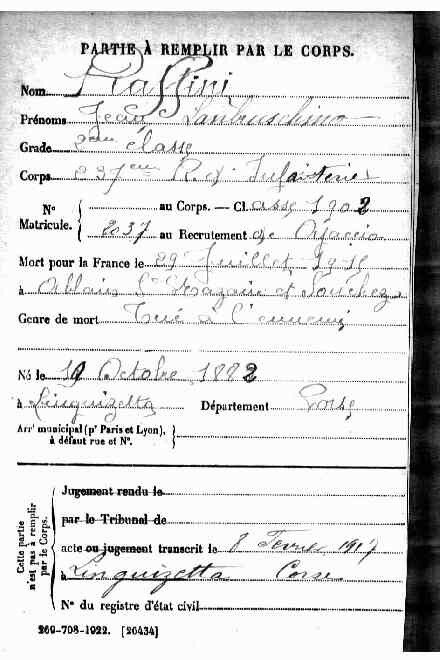 PARTIE À REMPLIR PAR LE CORPS.
Nom
Prénoms Jean
Grade 2ème classe
Corps 237eme Rgt Infanterie
N° Matricule. { au Corps. — Classe 1902
2037 au Recrutement de Ajaccio
Mort pour la France le 29 Juillet 1915
à Ablain St Nazaire et Souchez
Genre de mort Tué à l'ennemi
Né le 19 Octobre 1882
à Linguizetta Département Corse
Arrt municipal (pr Paris et Lyon), à défaut rue et N°. }
Cette partie n'est pas à remplir par le Corps.
Jugement rendu le
par le Tribunal de
acte ou jugement transcrit le 8 Fevrier 1917
à Linguizetta Corse
N° du registre d'état civil
269-708-1922. [26434]